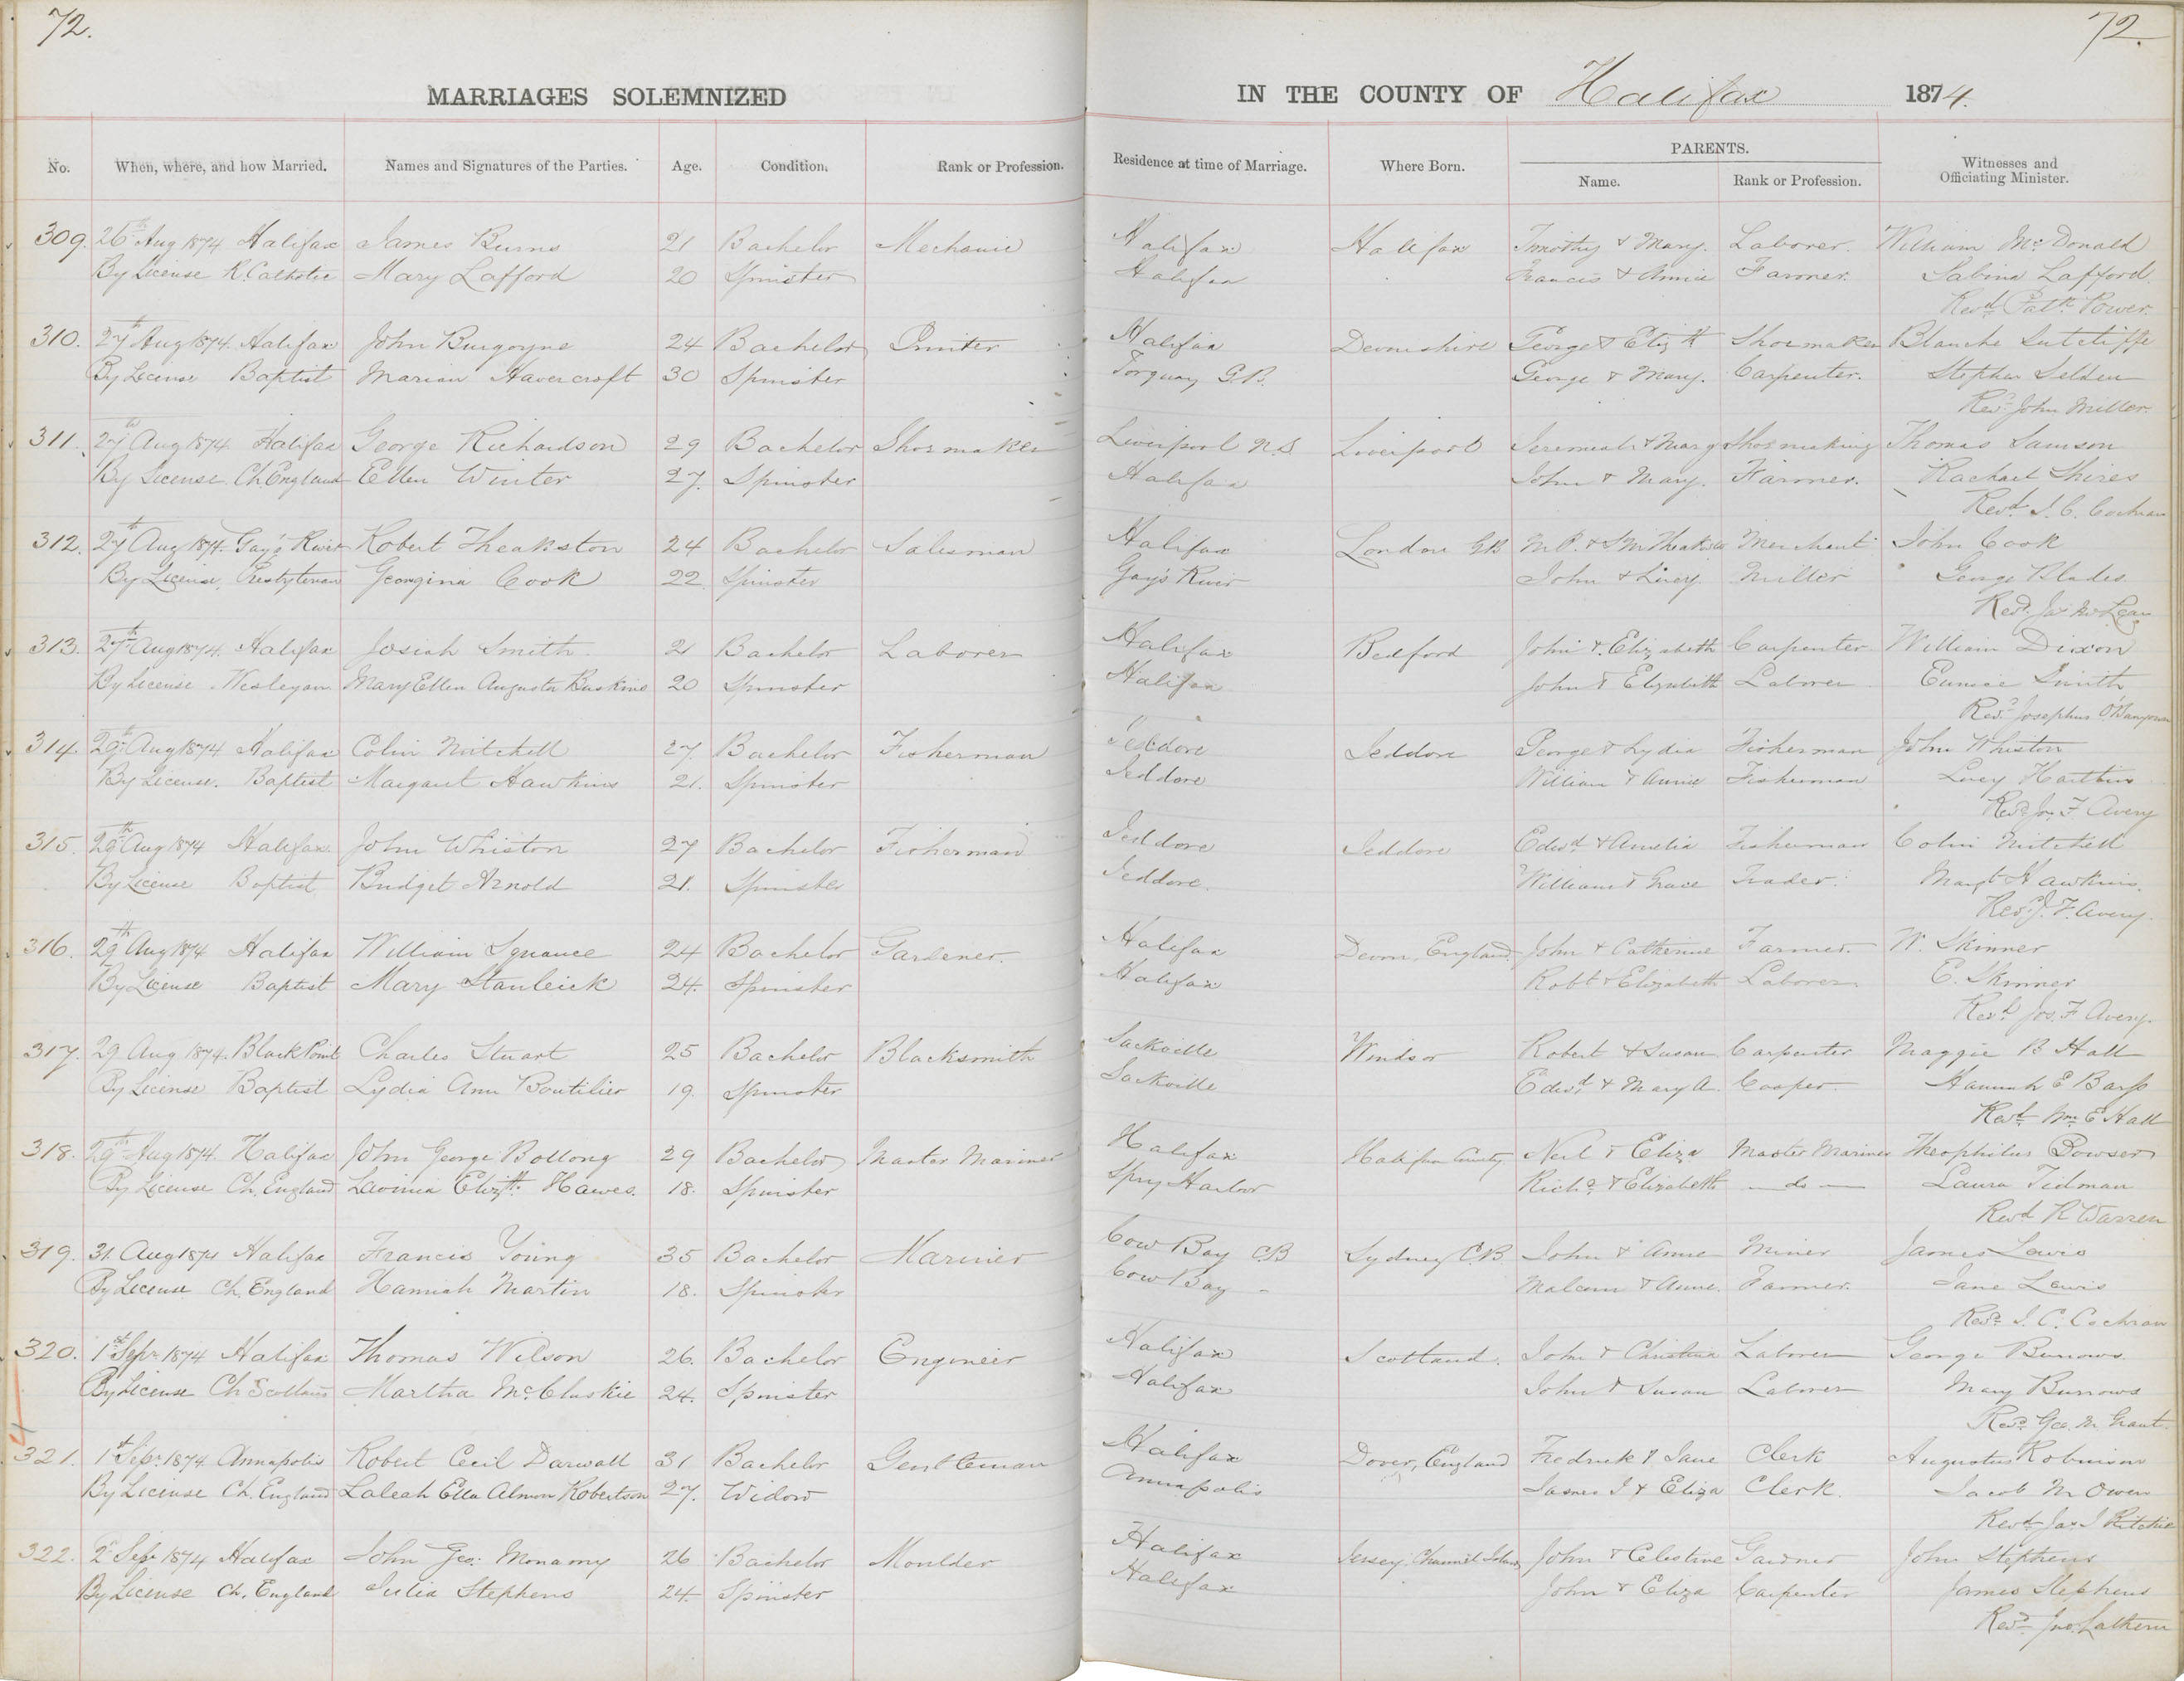 72.
72.
MARRIAGES SOLEMNIZED IN THE COUNTY OF Halifax 1874.
No. When, where, and how Married. Names and Signatures of the Parties. Age. Condition. Rank or Profession. Residence at time of Marriage. Where Born. PARENTS. Witnesses and Officiating Minister.
Name. Rank or Profession.
309. 26th Aug 1874 Halifax James Burns 21 Bachelor Mechanic Halifax Halifax Timothy & Mary. Laborer. William Mc Donald
By License R. Catholic Mary Lafford 20 Spinster Halifax Francis & Annie Farmer. Sabina Lafford.
Revd Patk Power.
310. 27th Aug 1874. Halifax John Burgoyne 24 Bachelor Printer Halifax Devonshire George & Elizth Shoemaker Blanche Sutcliffe
By License Baptist Marian Havercroft 30 Spinster Torquay G.B. George & Mary. Carpenter. Stephen Selden
Revd John Miller.
311. 27th Aug 1874 Halifax George Richardson 29 Bachelor Shoemaker Liverpool N.S. Liverpool Jeremiah & Mary Shoemaking Thomas Samson
By License. Ch. England Ellen Winter 27. Spinster Halifax John & Mary. Farmer. Rachael Shires
Revd J. C. Cochran
312. 27th Aug 1874. Gay's River Robert Theakston 24 Bachelor Salesman Halifax London GB Merchant John Cook
By License, Presbyterian Georgina Cook 22 Spinster Gay's River John & Lucy Miller George Blades
Revd Jas McLean
313. 27th Aug 1874. Halifax Josiah Smith. 21 Bachelor Laborer Halifax Bedford John & Elizabeth Carpenter William Dixon
By License Wesleyan Mary Ellen Augusta Buskins 20 Spinster Halifax John & Elizabeth Laborer Eunice Smith
Revd Josephus O'Banyoun
314. 29th Aug 1874 Halifax Colin Mitchell 27. Bachelor Fisherman Jeddore Jeddore George & Lydia Fisherman John Whiston
By License. Baptist Margaret Hawkins 21. Spinster Jeddore William & Annie Fisherman Lucy
Revd Jos. F. Avery
315. 29th Aug 1874 Halifax. John Whiston 27 Bachelor Fisherman Jeddore Jeddore Edwd & Amelia Fisherman Colin Mitchell
By License Baptist Bridget Arnold 21. Spinster Jeddore. William & Grace Trader. Margt Hawkins.
Revd J. F. Avery.
316. 29th Aug 1874 Halifax William Squance 24 Bachelor Gardener. Halifax Devon, England. John & Catherine Farmer. W. Skinner
By License Baptist Mary Stanleick 24. Spinster Halifax Robt & Elizabeth Laborer E. Skinner
Revd Jos. F Avery.
317. 29 Aug 1874. Black Point Charles Stuart 25 Bachelor Blacksmith Sackville Windsor Robert & Susan Carpenter Maggie B Hall
By License Baptist Lydia Ann Boutilier 19. Spinster Sackville Edwd & Mary A. Cooper. Hannah E Barss
Revd Wm E Hall
318. 29th Aug 1874. Halifax John George Bollong 29 Bachelor Master Mariner Halifax Halifax County Neil & Eliza Master Mariner Theophilus Bowser
By License Ch. England Lavinia Elizth Hawes. 18. Spinster Spry Harbor Richd & Elizabeth — do — Laura Tidman
Revd R Warren
319. 31. Aug 1874 Halifax Francis Young 35 Bachelor Mariner Cow Bay C.B Sydney C.B John & Anne Miner James Lewis
By License Ch. England Hannah Martin 18. Spinster Cow Bay - Malcum & Anne. Farmer. Jane Lewis
Revd J. C. Cochran
320. 1st Sepr 1874 Halifax Thomas Wilson 26. Bachelor Engineer Halifax Scotland. John & Christina Laborer George Burrows.
By License Ch Scotland Martha McCluskie 24. Spinster Halifax John & Susan Laborer Mary Burrows
Revd Geo. M Grant.
321. 1st Sepr 1874 Annapolis Robert Cecil Darwall 31 Bachelor Gentleman Halifax Dover, England Fredrick & Jane Clerk Augustus Robinson
By License Ch. England Laleah Ella Almon Robertson 27. Widow Annapolis James J & Eliza Clerk. Jacob M Owen
Revd Jas J Ritchie
322. 2d Sepr 1874 Halifax John Geo: Monamy 26 Bachelor Moulder Halifax Jersey, Channel Islands John & Celestine Gardner John Stephens
By License Ch. England Julia Stephens 24. Spinster Halifax John & Eliza Carpenter James Stephens
Revd Jno. Lathern